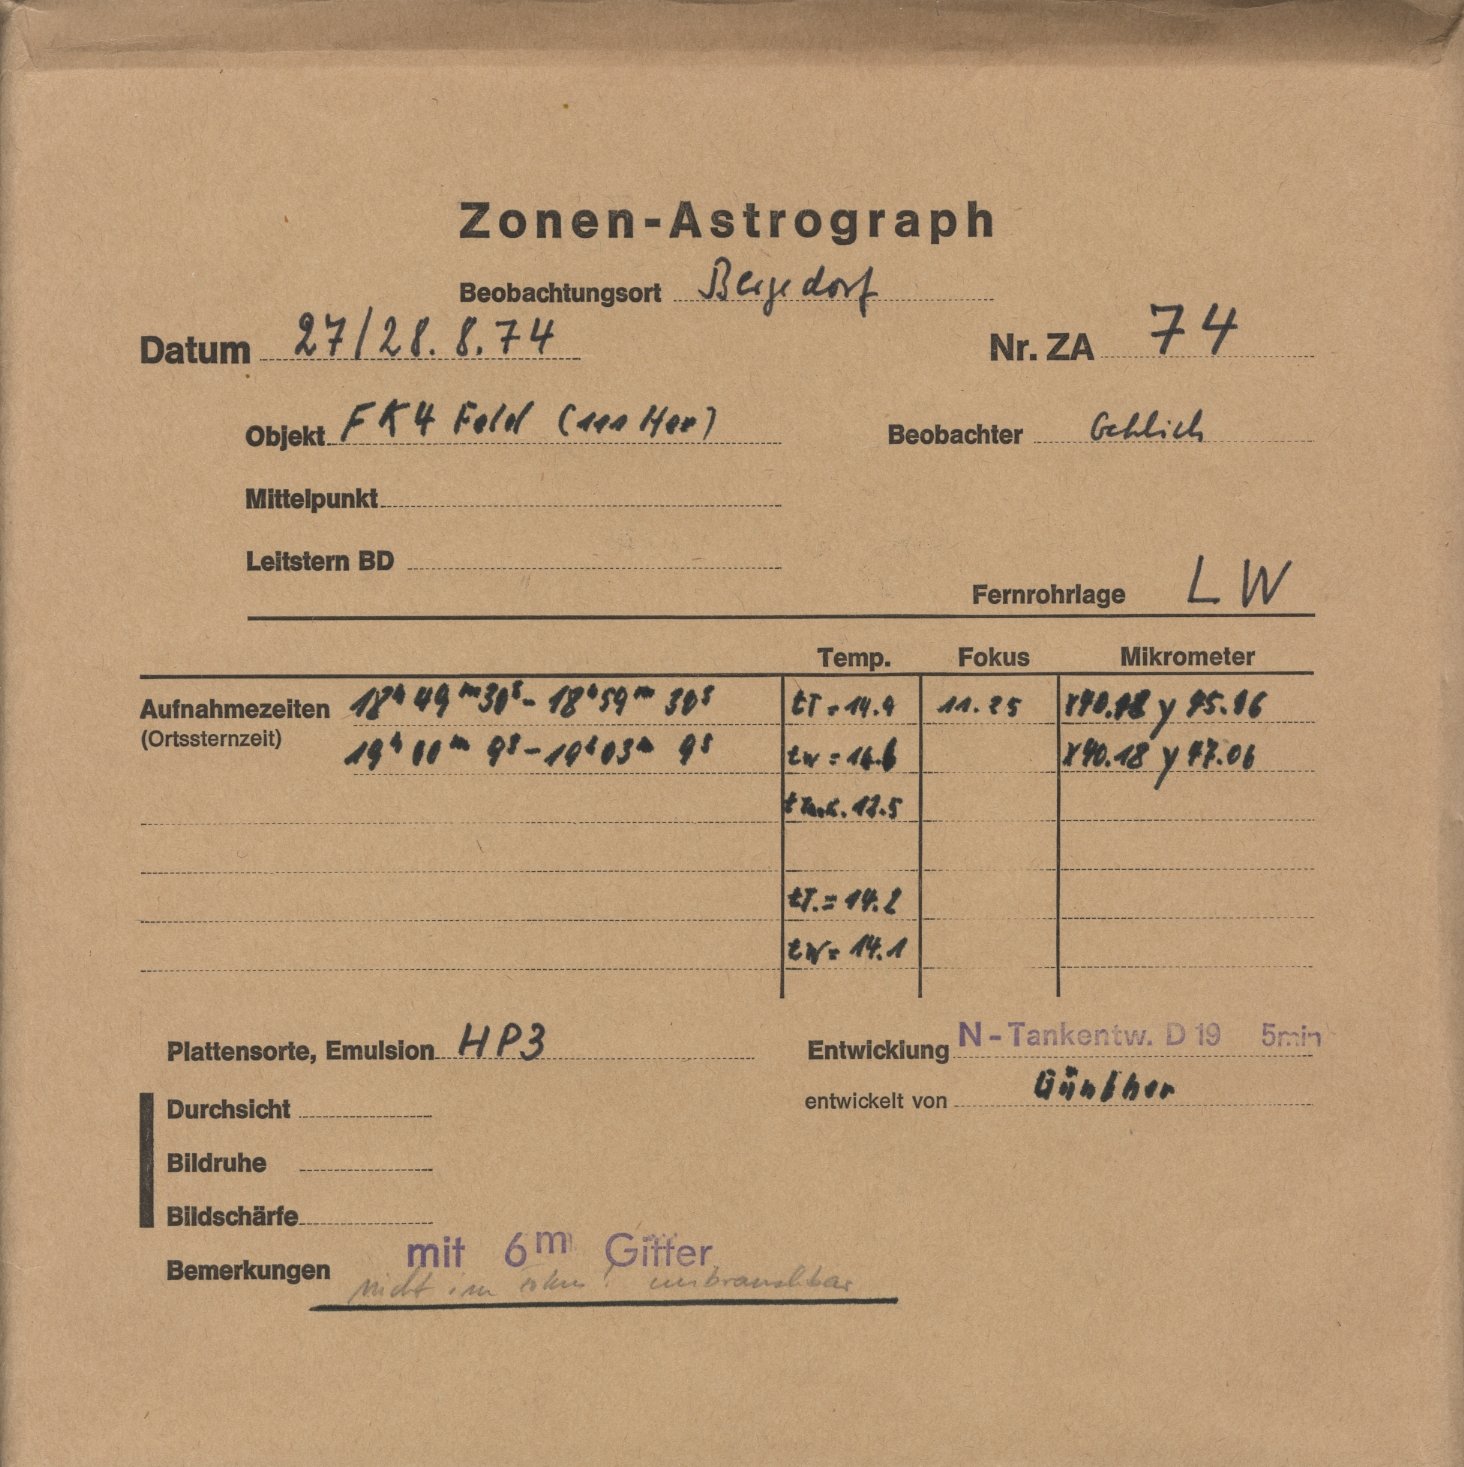 Zonen-Astrograph
Beobachtungsort Bergedorf
Datum 27/28. 8. 74 Nr. ZA 74
Objekt FK4 Feld (111 Her) Beobachter Gehlich
Mittelpunkt
Leitstern BD
Fernrohrlage L W
Temp. Fokus Mikrometer
Aufnahmezeiten 18h 49m 30s - 18h 59m 30s tT = 14.4 11.25 y
(Ortssternzeit)
19h 00m 9s - 19h 03m 9s tw = x40.18 y 47.06
tT. = 14.2
tw = 14.1
Plattensorte, Emulsion HP3 Entwicklung N-Tankentw. D 19 5min
entwickelt von Günther
Durchsicht
Bildruhe
Bildschärfe
Bemerkungen mit 6m Gitter
nicht im unbrauchbar